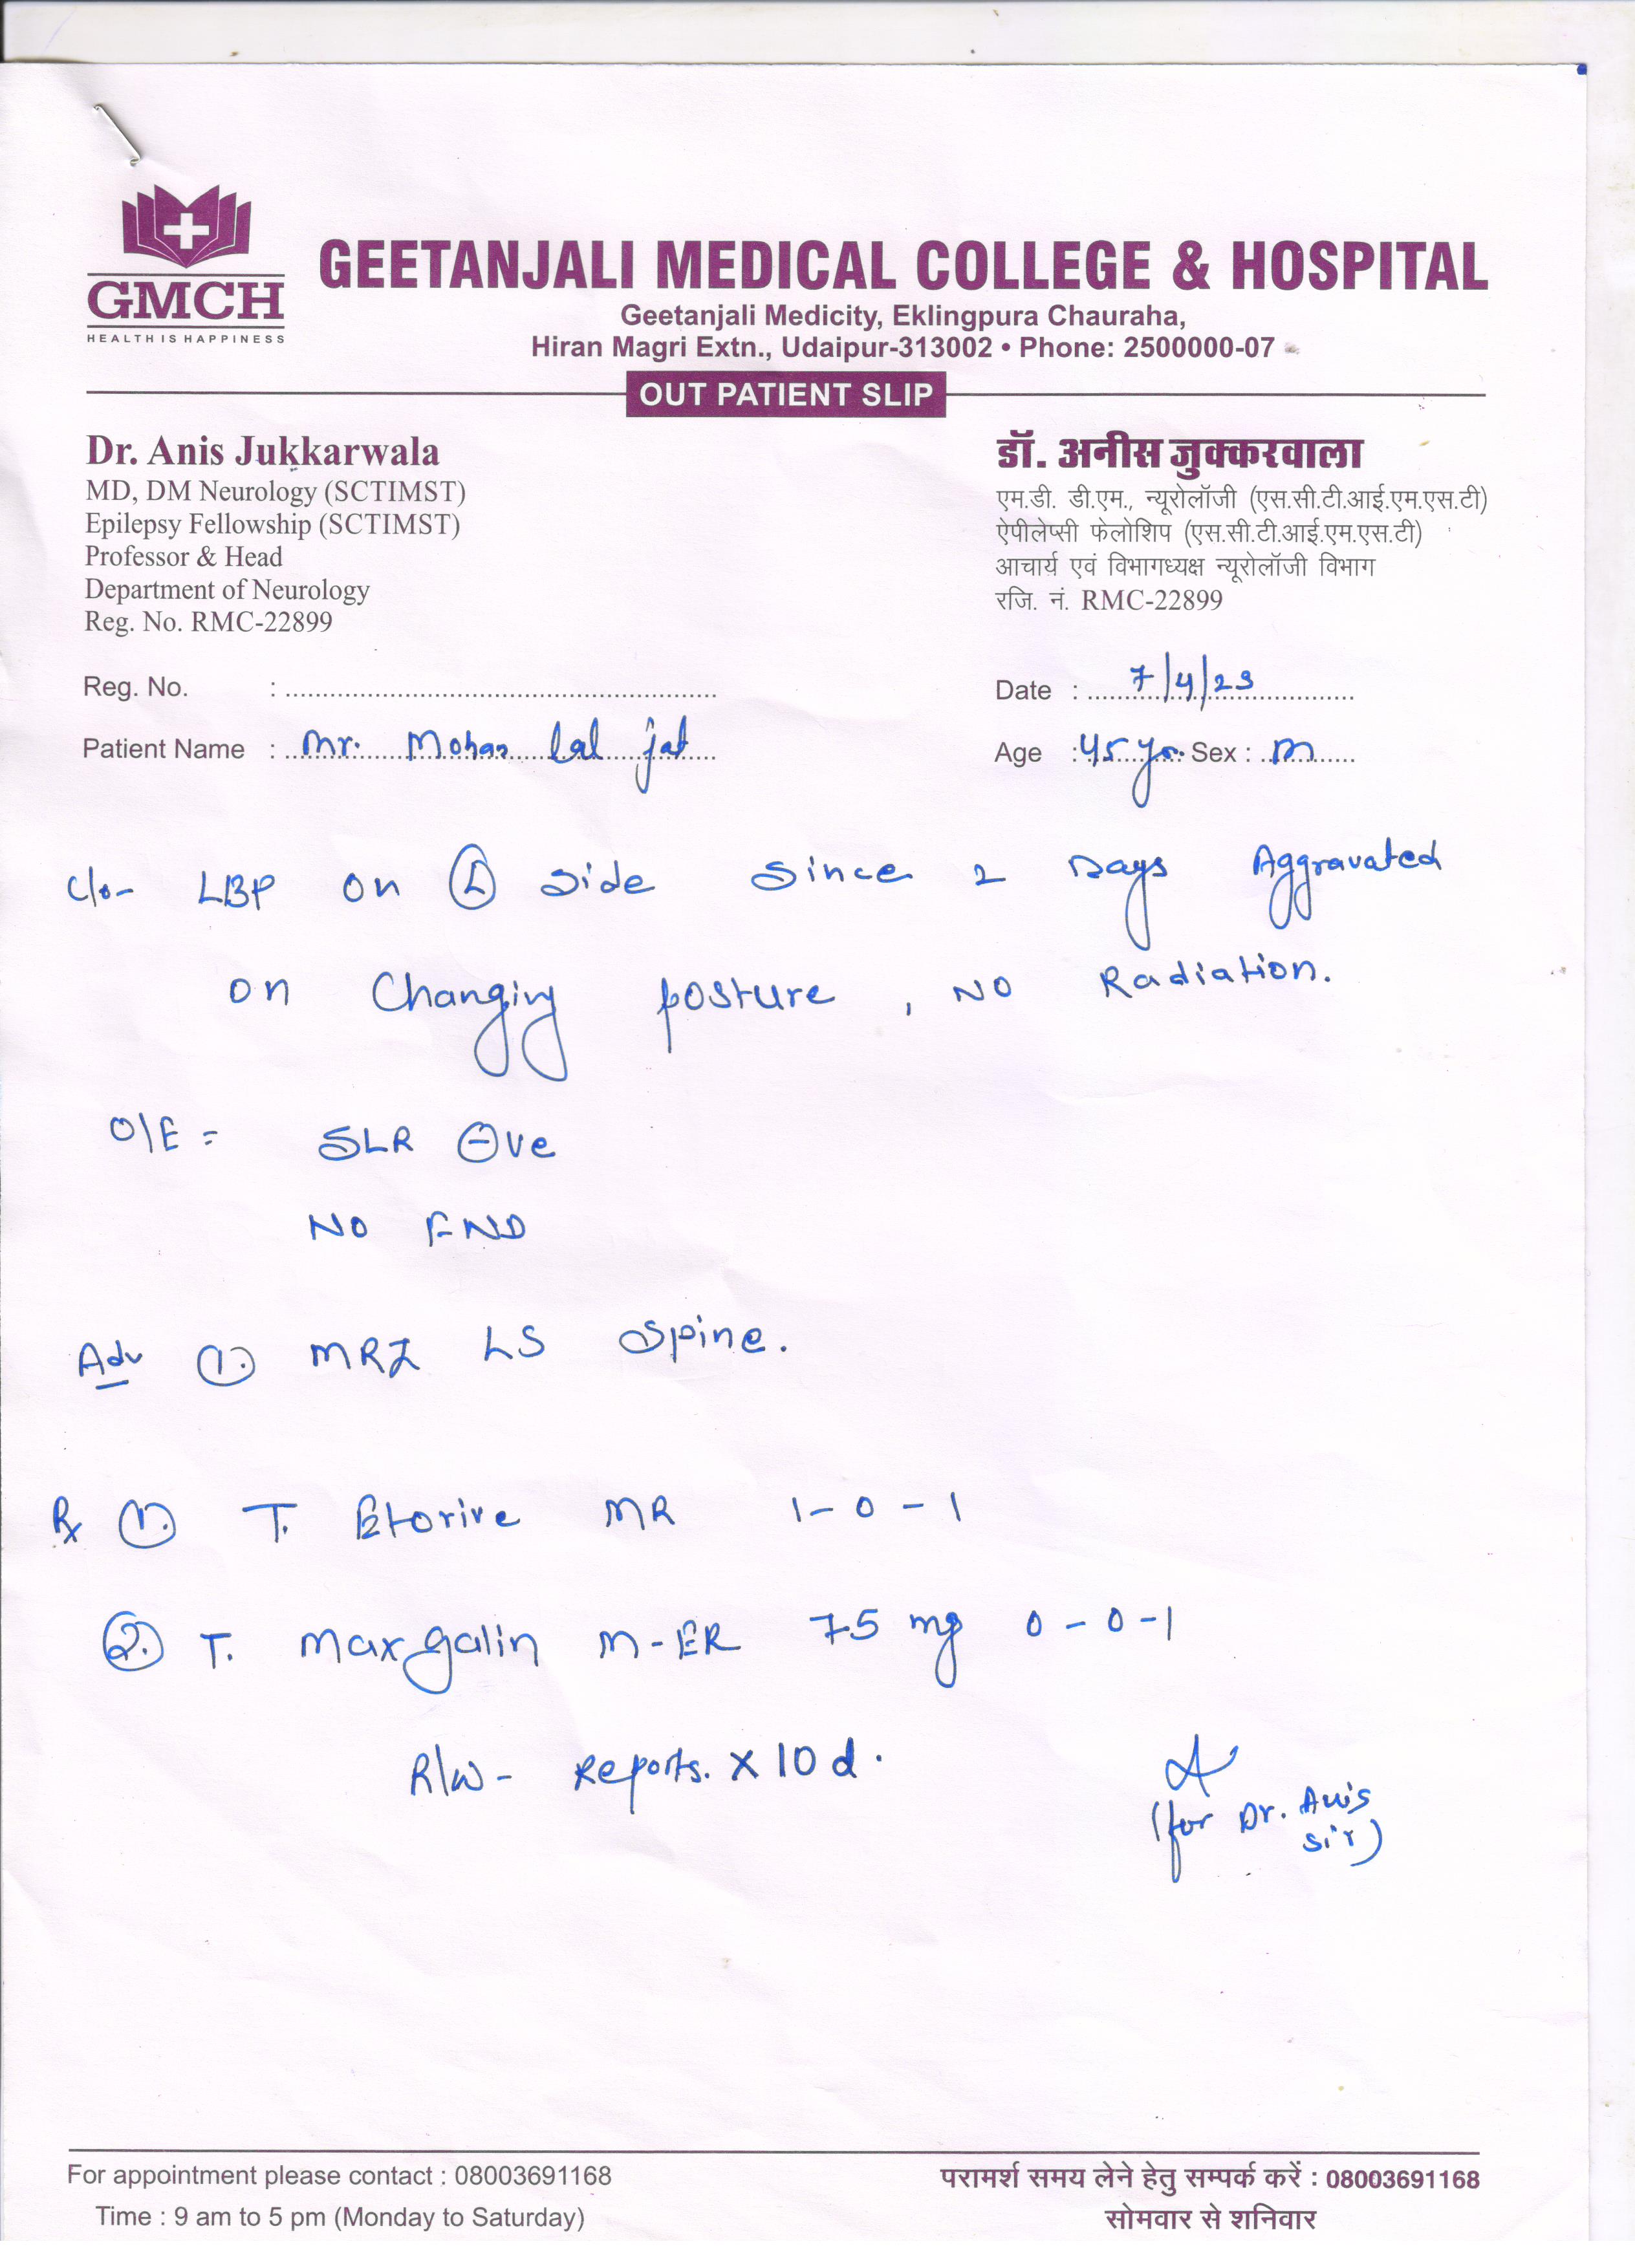 GMCH
HEALTH IS HAPPINESS
GEETANJALI MEDICAL COLLEGE & HOSPITAL
Geetanjali Medicity, Eklingpura Chauraha,
Hiran Magri Extn., Udaipur-313002 • Phone: 2500000-07
OUT PATIENT SLIP
Dr. Anis Jukkarwala
MD, DM Neurology (SCTIMST)
Epilepsy Fellowship (SCTIMST)
Professor & Head
Department of Neurology
Reg. No. RMC-22899
डॉ. अनीस जुक्करवाला
एम.डी. डी.एम., न्यूरोलॉजी (एस.सी.टी.आई.एम.एस.टी)
ऐपीलेप्सी फेलोशिप (एस.सी.टी.आई.एम.एस.टी)
आचार्य एवं विभागध्यक्ष न्यूरोलॉजी विभाग
रजि. नं. RMC-22899
Reg. No. :
Date : 7/4/23
Patient Name : Mr. Mohan lal jat
Age : 45 yr. Sex : M
C/o- LBP on Ⓛ side since 2 Days Aggravated
on Changing posture, NO Radiation.
O/E = SLR ⊖ve
NO FND
Adv ① MRI LS Spine.
Rx ① T. Etorive MR 1-0-1
② T. Maxgalin M-ER 75 mg 0-0-1
R/W- Reports. x 10 d.
(for Dr. Anis
sir)
For appointment please contact : 08003691168
Time : 9 am to 5 pm (Monday to Saturday)
परामर्श समय लेने हेतु सम्पर्क करें : 08003691168
सोमवार से शनिवार